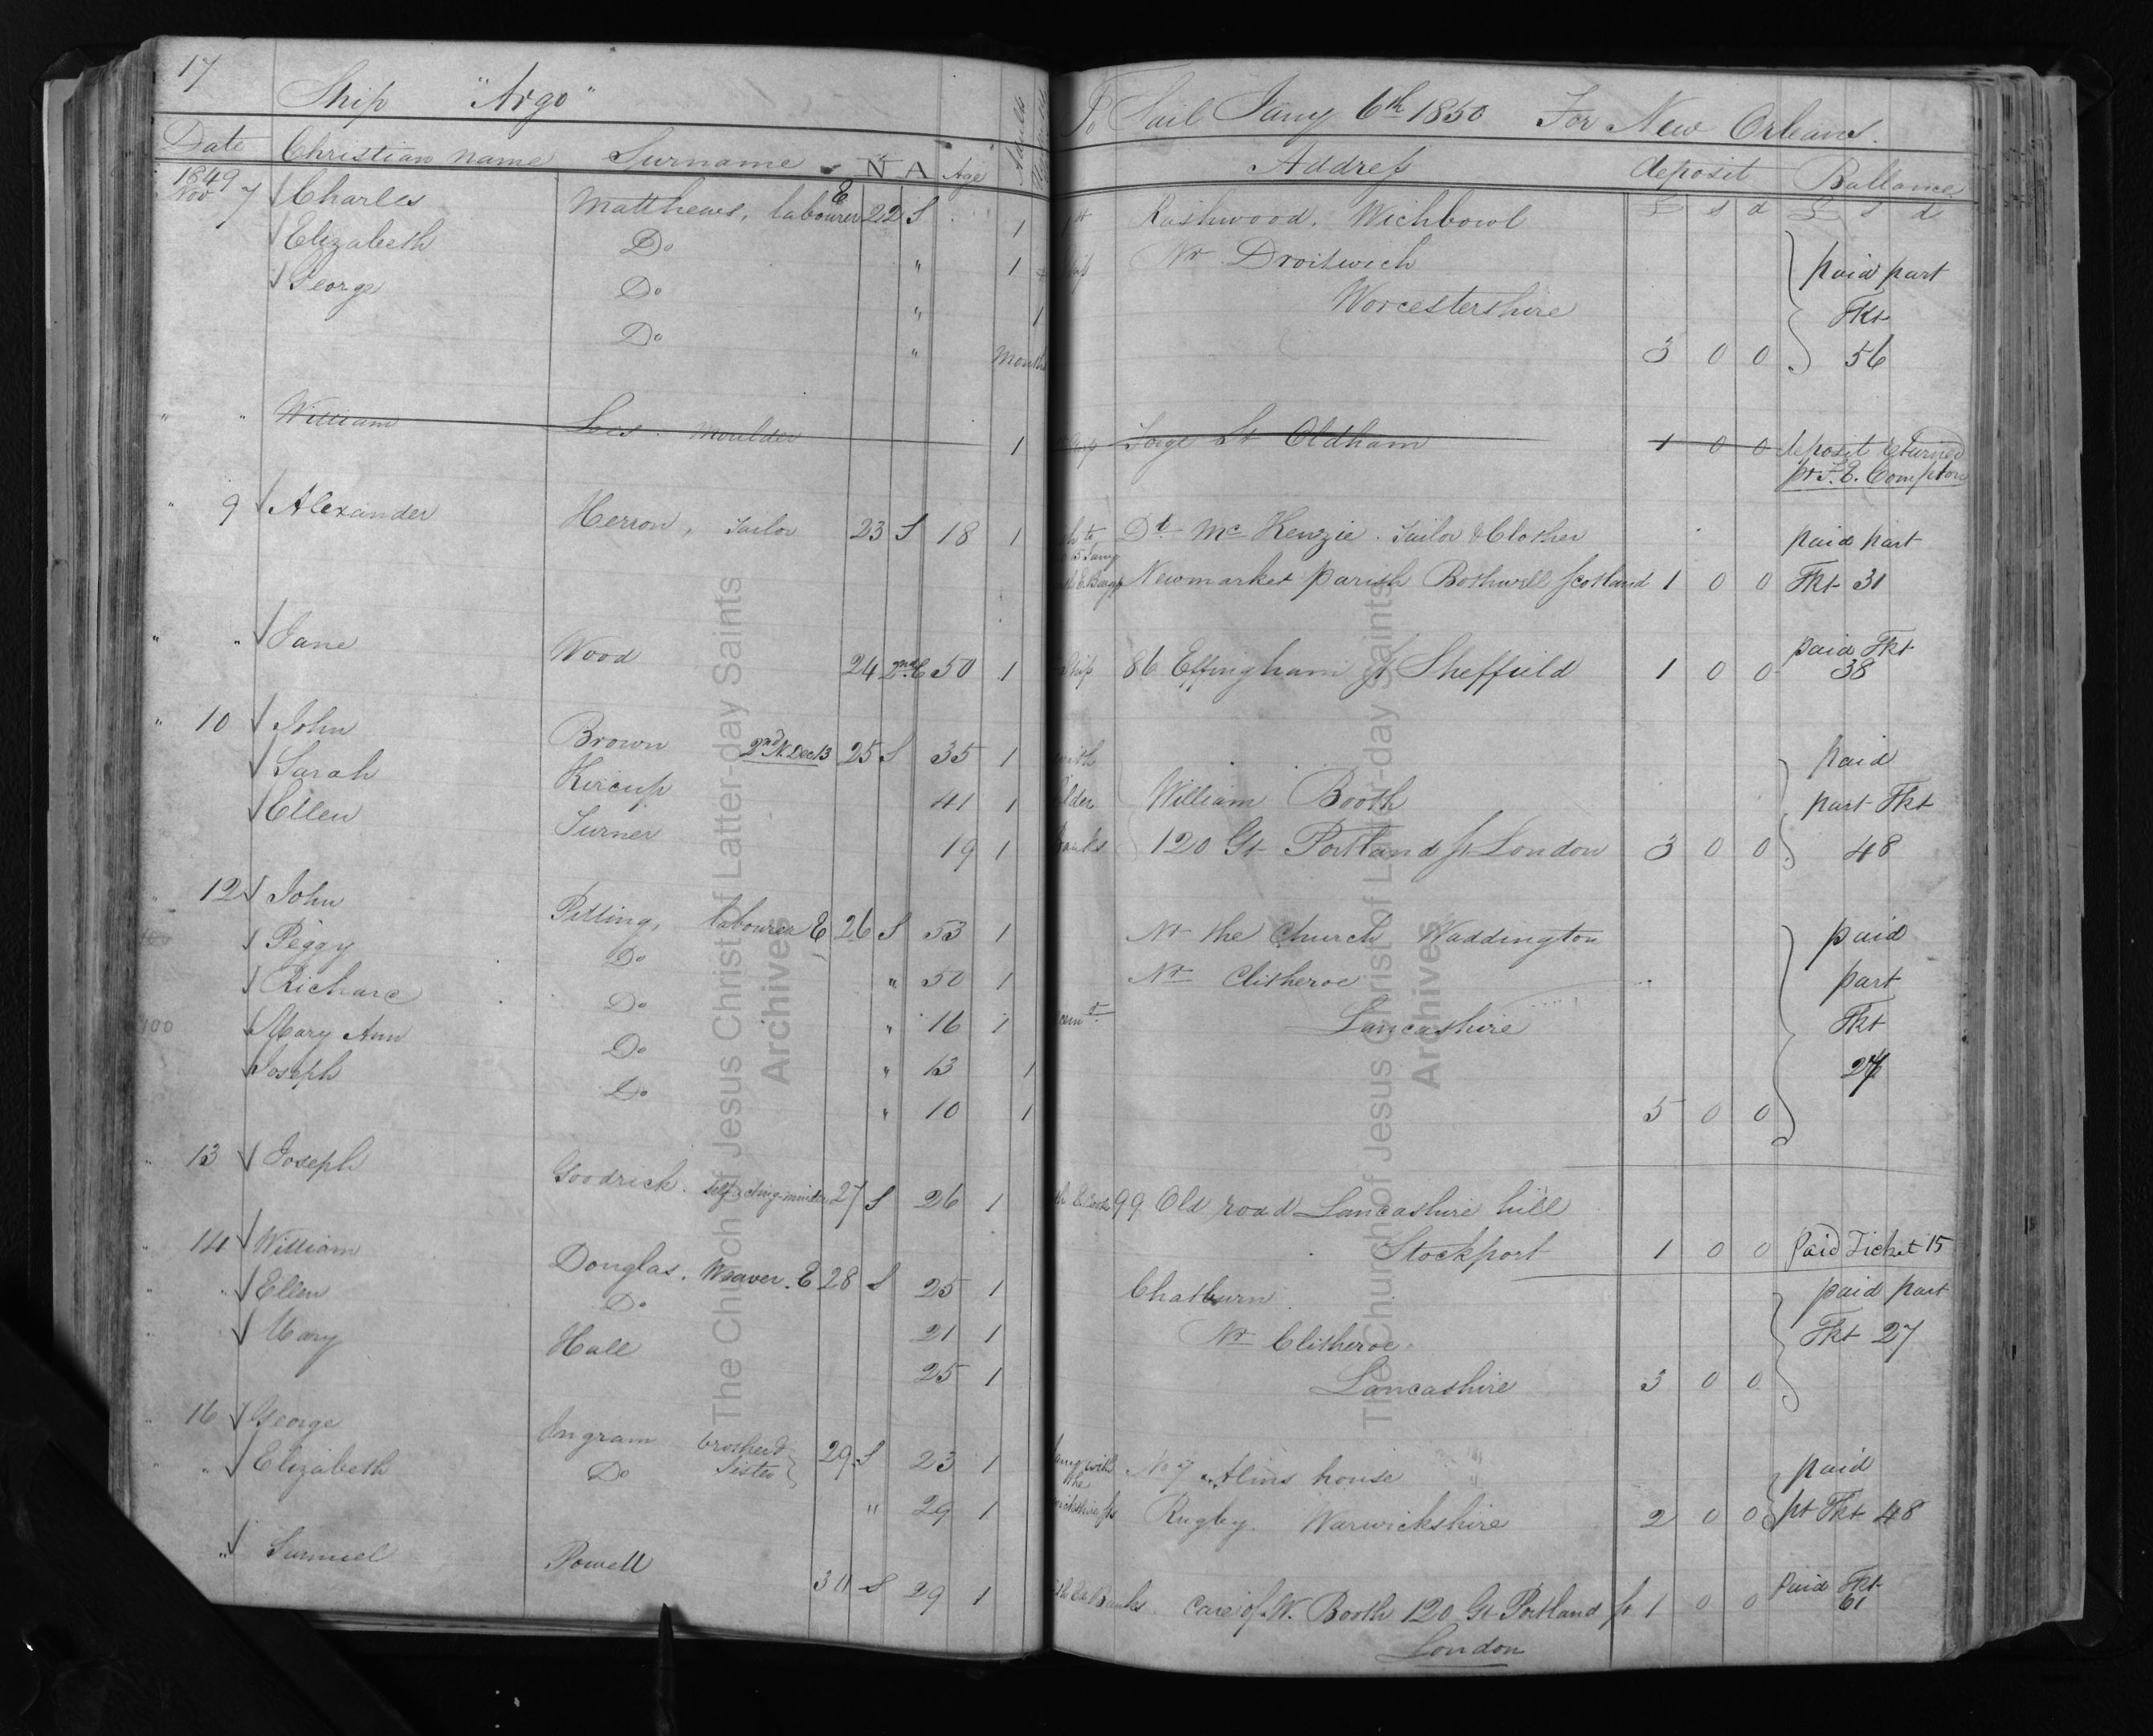 17
Ship "Argo"
To Sail Jany 6th 1850 For New Orleans.
Date Christian name Surname N A Age Adults
Address deposit Ballance
£ s d £ s d
1849
Nov 7 Charles Matthews, labourer E 22 S 1 Rashwood, Wichbowl
Elizabeth Do " 1 Nr Droitwich paid part
George Do " 1 Worcestershire Tkt
Do " Months 3 0 0 56
" " William Lees. Moulder 1 St Oldham 1 0 0 deposit returned
pr T.C. Compton
" 9 Alexander Herron, Tailor 23 S 18 1 Mc Kenzie. Tailor & Clother paid part
Newmarket parish Bothwell Scotland 1 0 0 Tkt 31
" " Jane Wood 24 2nd C 50 1 86 Effingham St Sheffield 1 0 0 paid Tkt
38
" 10 John Brown 2nd N. Dec 13 25 S 35 1 paid
Sarah Kircup 41 1 William Booth part Tkt
Ellen Turner 19 1 120 Gt Portland St London 3 0 0 48
" 12 John Pilling, labourer E 26 S 53 1 Nr the Church Waddington paid
Peggy Do " 50 1 Nr Clitheroe part
100 Richard Do " 16 1 Lancashire Tkt
Mary Ann Do " 13 1
Joseph Do " 10 1 5 0 0
" 13 Joseph Goodrick. Self acting minder 27 S 26 1 99 Old road Lancashire hill
Stockport 1 0 0 Paid Ticket 15
" 14 William Douglas, Weaver. E 28 S 25 1 Chatburn paid part
" " Ellen Do 21 1 Nr Clitheroe. Tkt 27
" " Mary Hall 25 1 Lancashire 3 0 0
" 16 George Ingram brother & 29 S 23 1 No 7 Alms house paid
" " Elizabeth Do Sister " 29 1 Rugby. Warwickshire 2 0 0 pt Tkt 48
" Samuel Powell 30 S 29 1 Care of W. Booth 120 Gt Portland St 1 0 0 paid Tkt
61
London
The Church of Jesus Christ of Latter-day Saints
Archives
The Church of Jesus Christ of Latter-day Saints
Archives